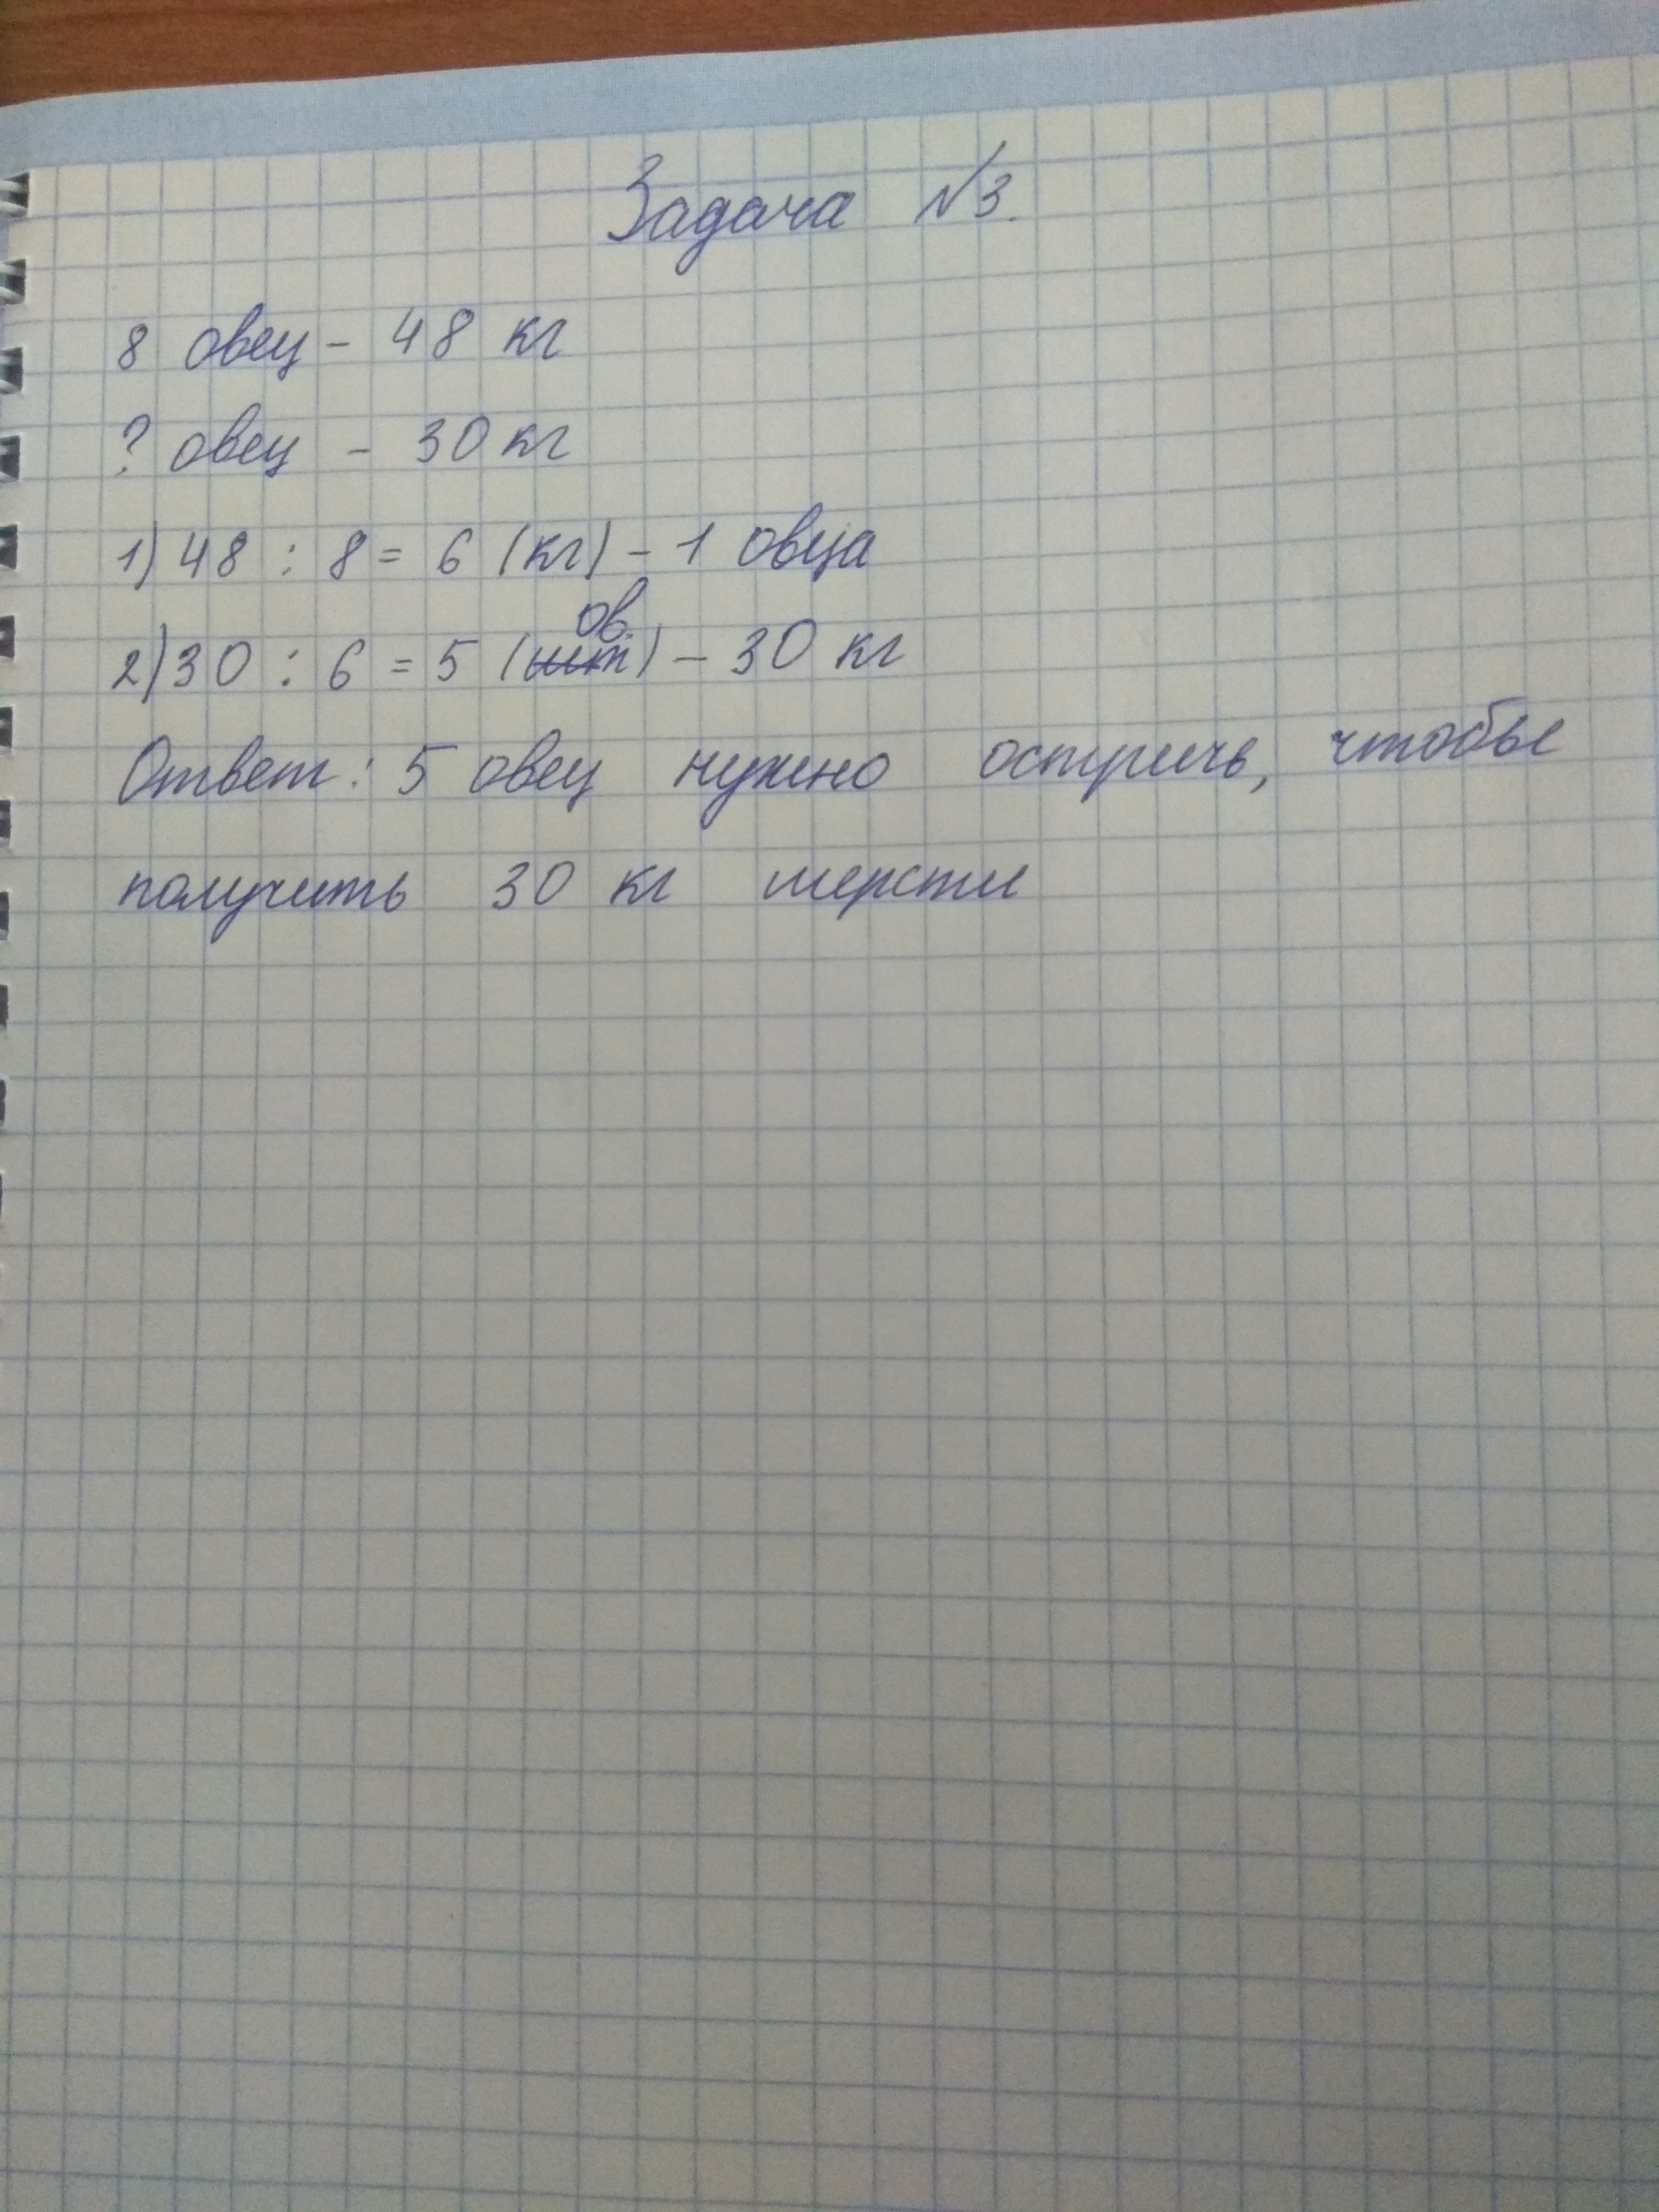 Задача №3.
8 овец - 48 кг
? овец - 30 кг
1) 48 : 8 = 6 (кг) - 1 овца
ов.
2) 30 : 6 = 5 (шт) - 30 кг
Ответ: 5 овец нужно остричь, чтобы
получить 30 кг шерсти